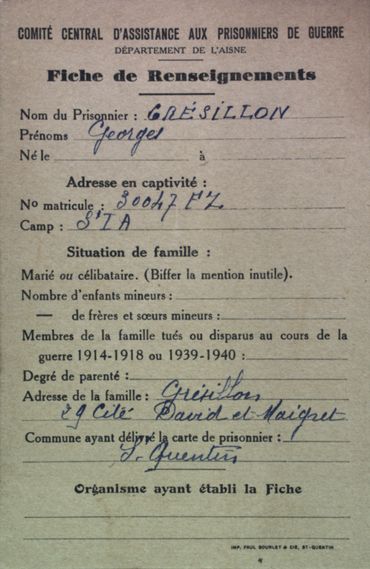 COMITÉ CENTRAL D'ASSISTANCE AUX PRISONNIERS DE GUERRE
DÉPARTEMENT DE L'AISNE
Fiche de Renseignements
Nom du Prisonnier : GRÉSILLON
Prénoms Georges
Né le à
Adresse en captivité :
No matricule : 30047
Camp : St I A
Situation de famille :
Marié ou célibataire. (Biffer la mention inutile).
Nombre d'enfants mineurs :
— de frères et sœurs mineurs :
Membres de la famille tués ou disparus au cours de la
guerre 1914-1918 ou 1939-1940 :
Degré de parenté :
Adresse de la famille : Grésillon
29 Cité David et Maigret
Commune ayant délivré la carte de prisonnier :
St Quentin
Organisme ayant établi la Fiche
IMP. PAUL BOURLET & CIE, ST-QUENTIN